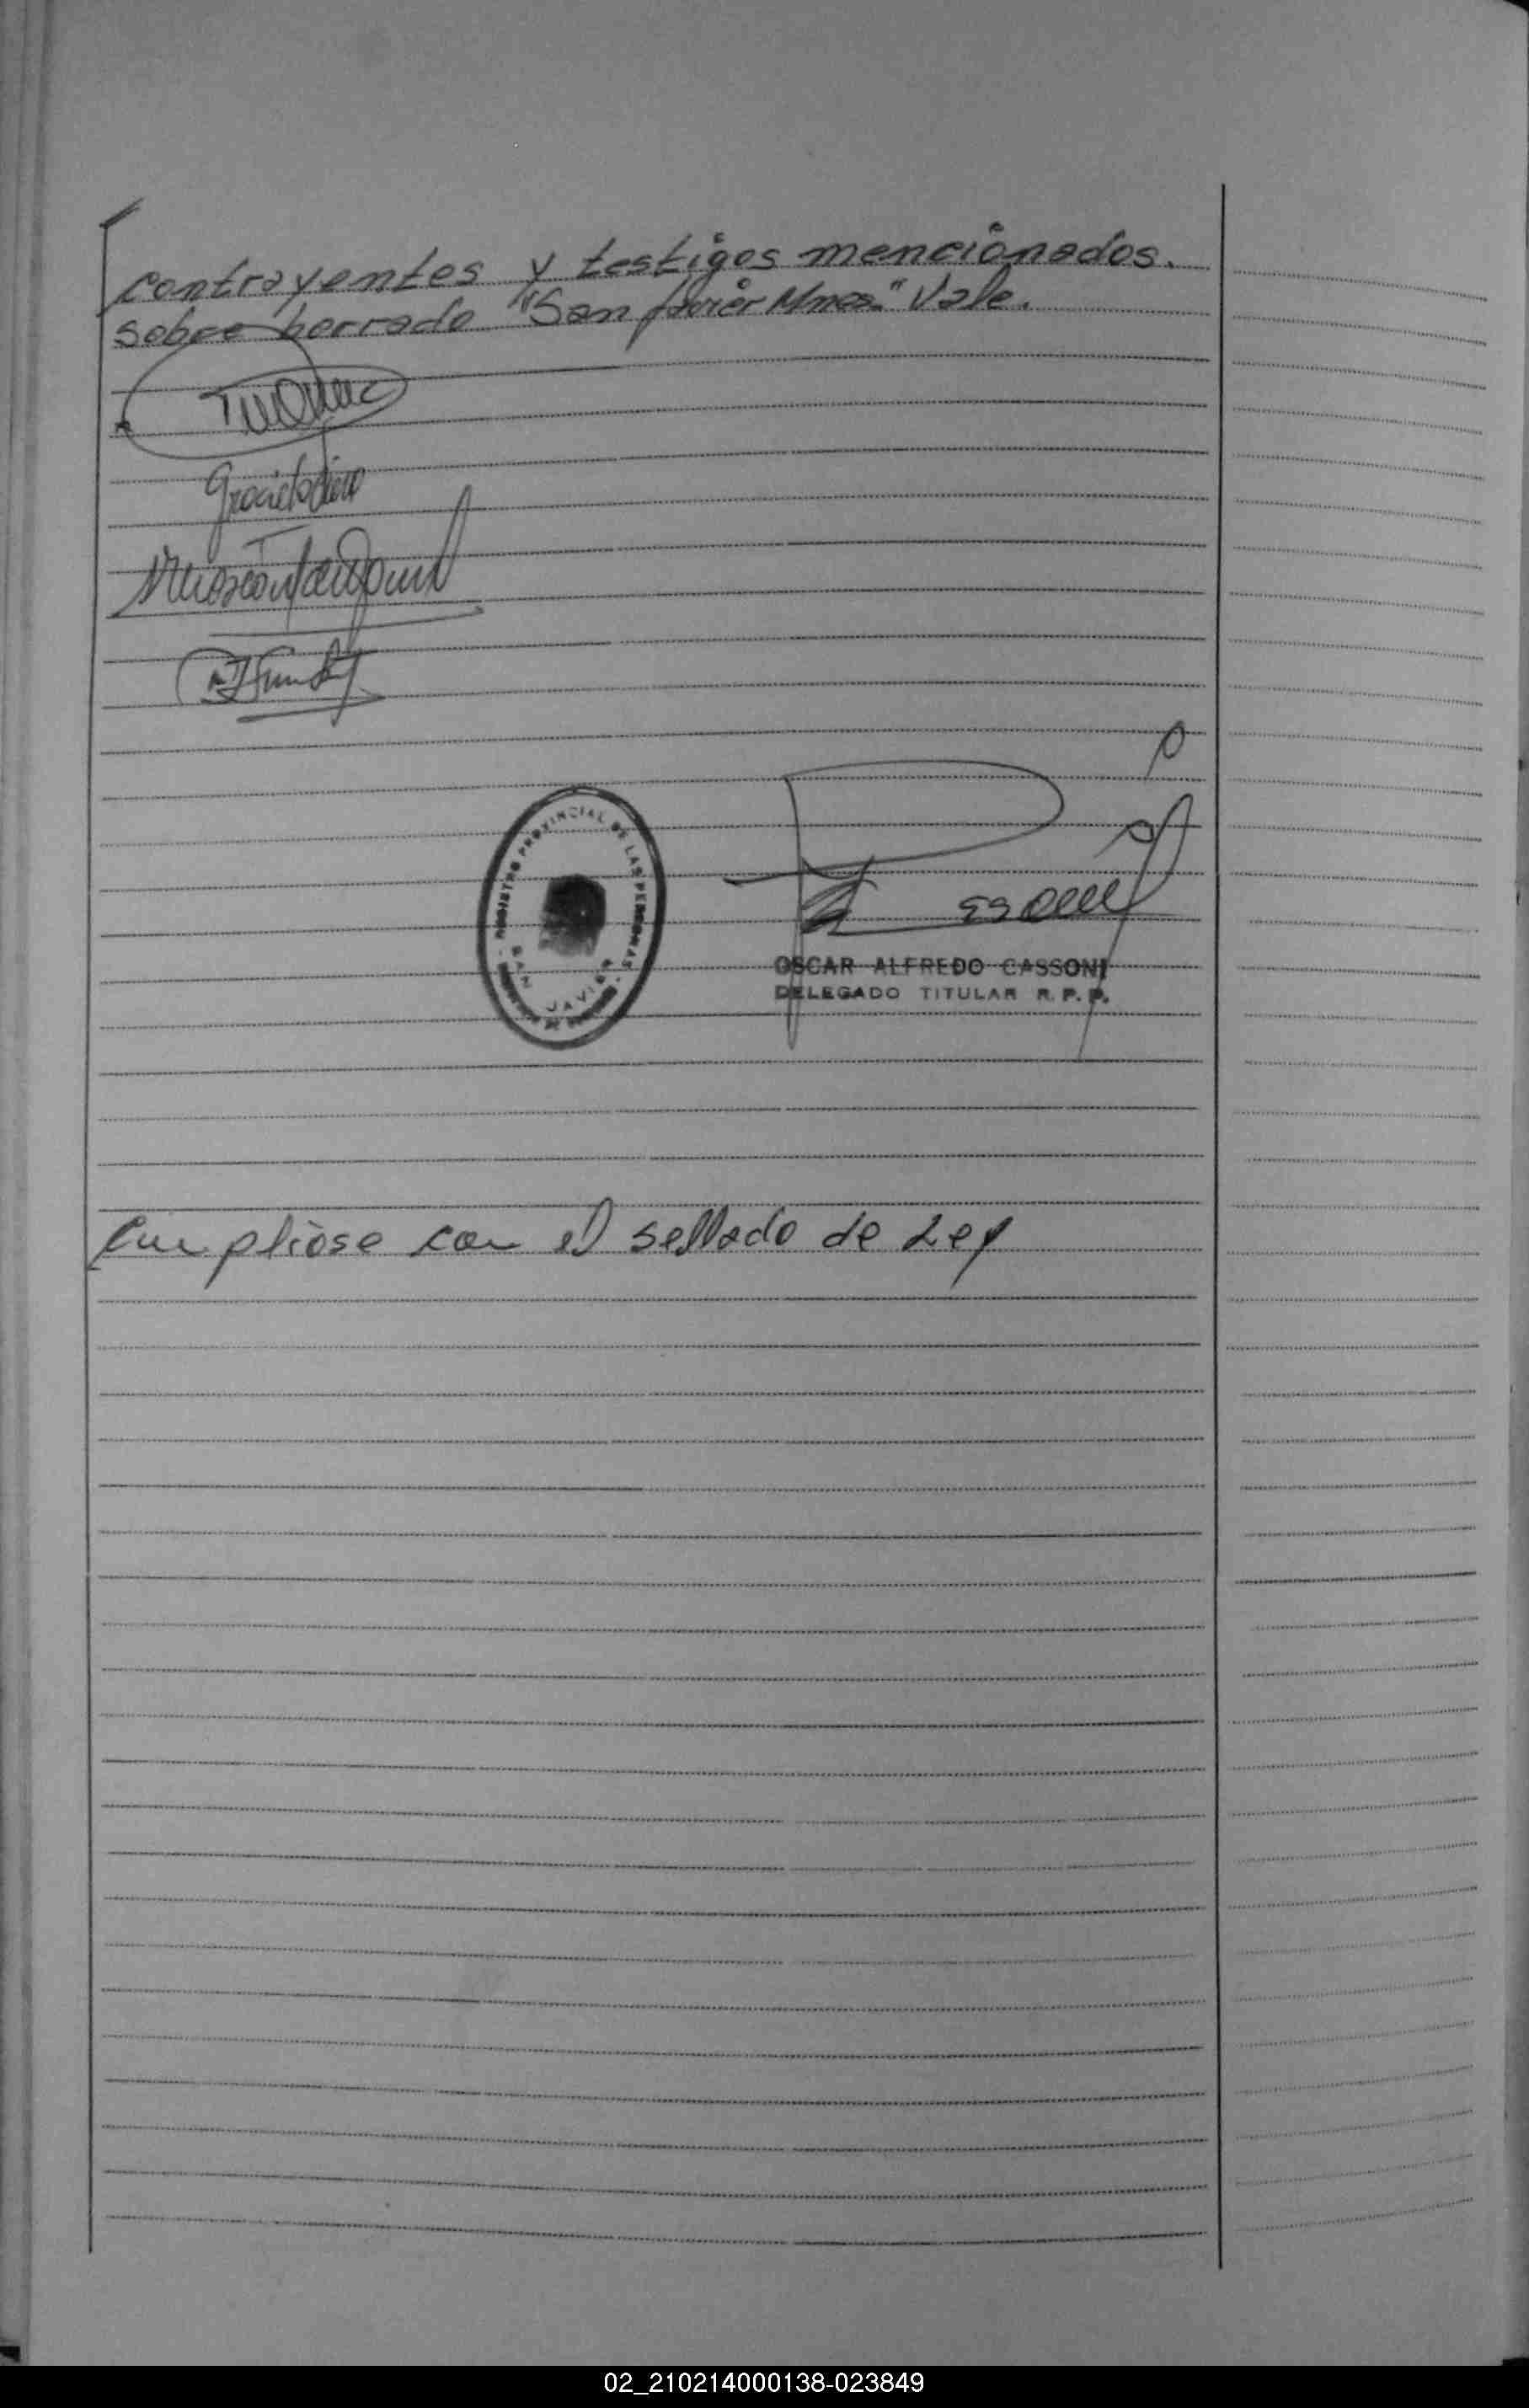 contrayentes y testigos mencionados.
sobre borrado "San Javier Mnes." Vale.
REGISTRO PROVINCIAL DE LAS PERSONAS
SAN JAVIER
OSCAR ALFREDO CASSONI
DELEGADO TITULAR R. P. P.
Cumpliose con el sellado de Ley
02_210214000138-023849